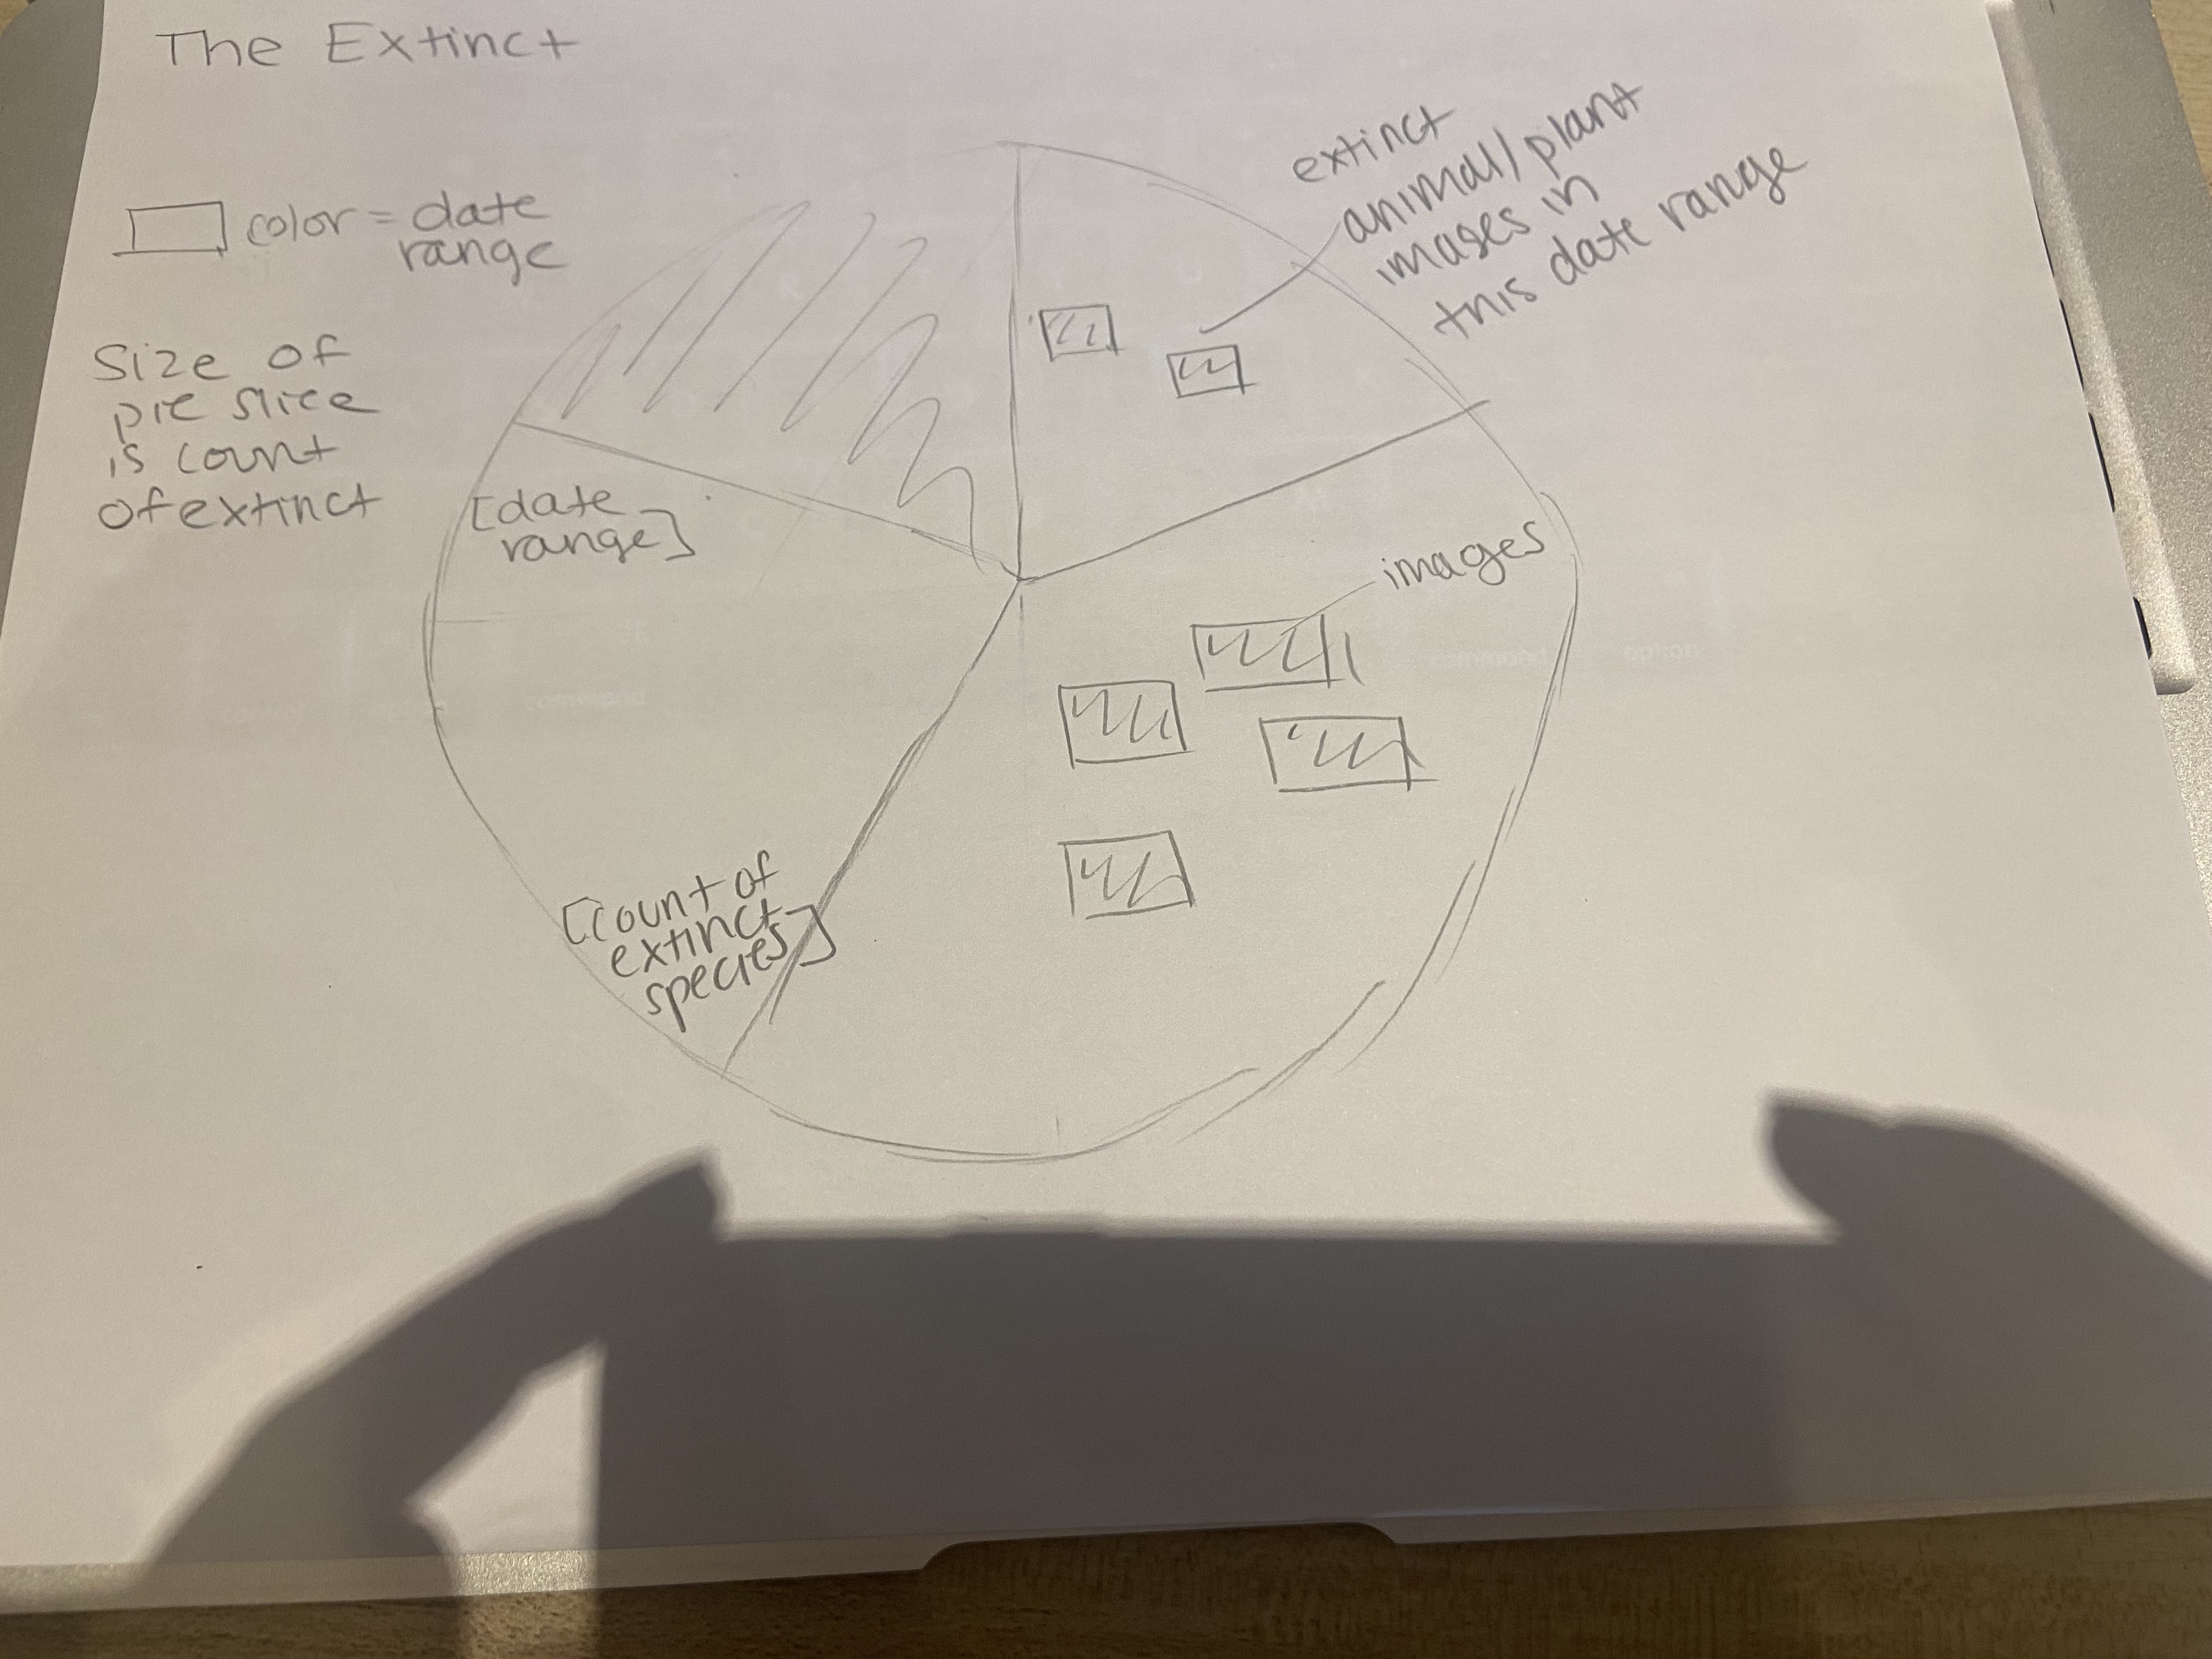 The Extinct
color = date
range
Size of
pie slice
is count
of extinct
extinct
animal/plant
images in
this date range
[date
range]
images
[count of
extinct
species]